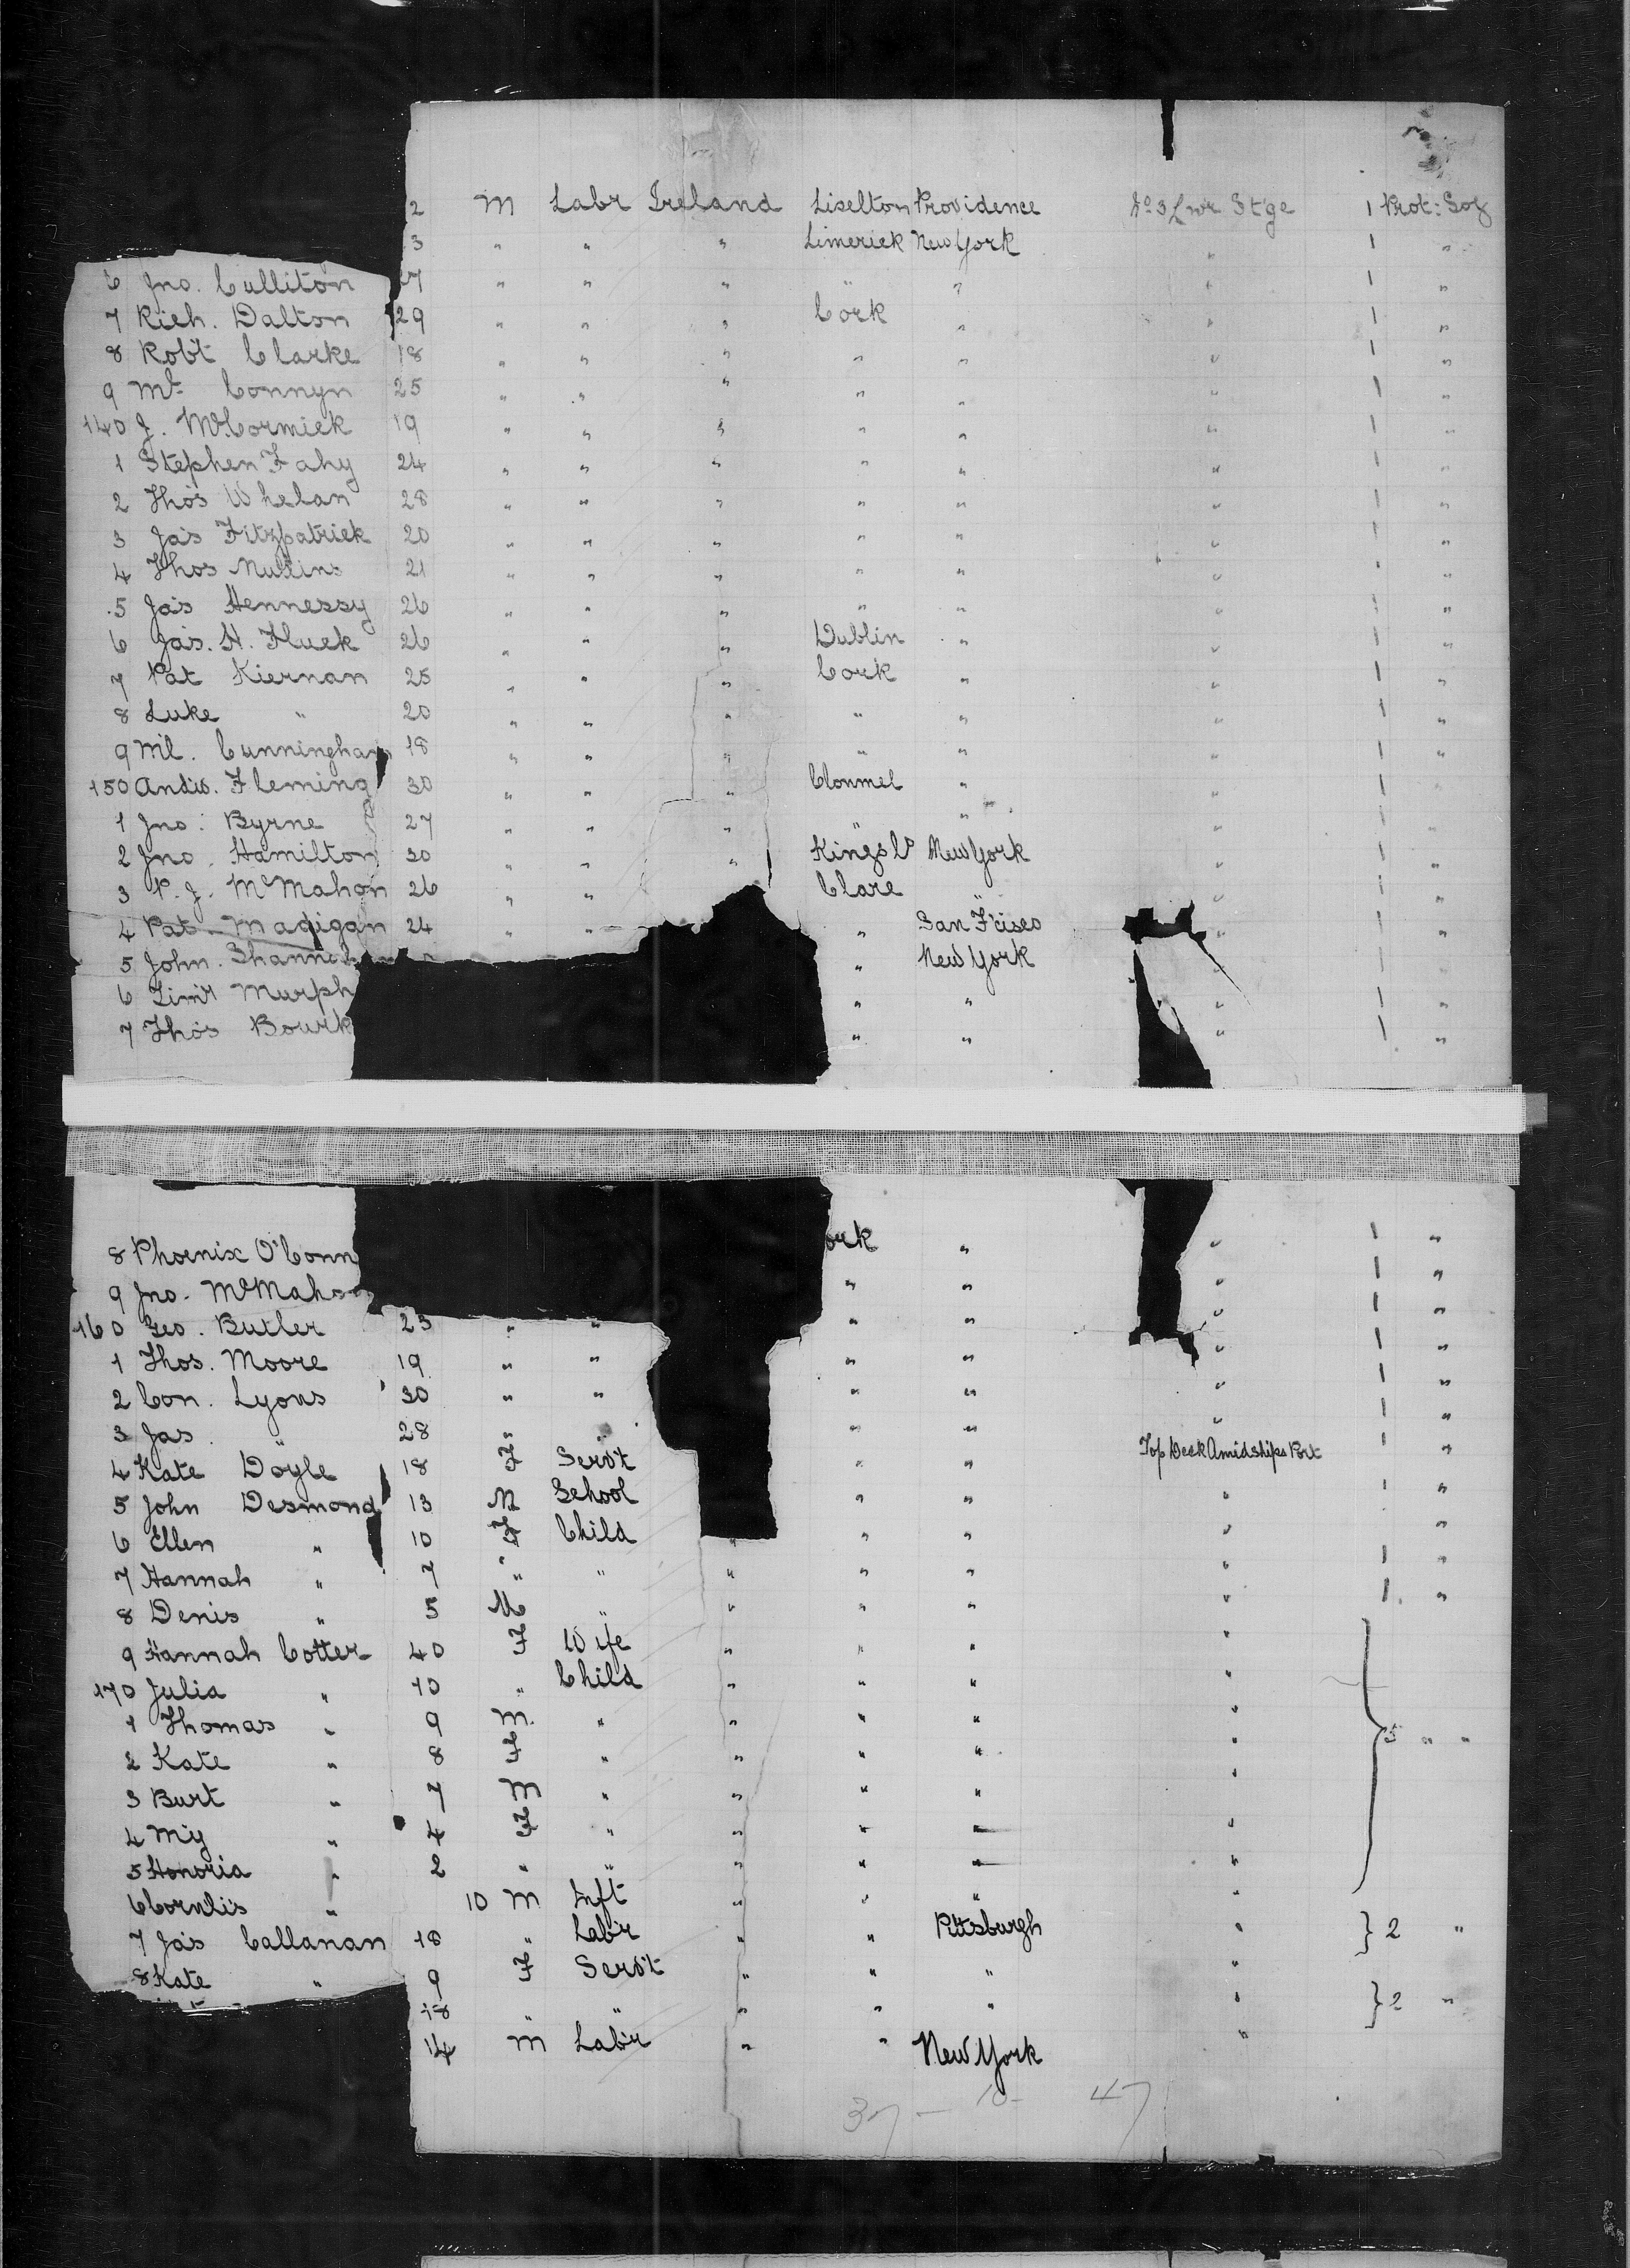 2 M Labr Ireland Liselton Providence No 3 Lwr Stge 1 Prot: Sog
3 " " " Limerick New York " 1 "
6 Jno. Culliton 27 " " " " " " 1 "
7 Rich. Dalton 29 " " " Cork " " 1 "
8 Robt Clarke 18 " " " " " " 1 "
9 Mt. Connyn 25 " " " " " " 1 "
140 J. McCormick 19 " " " " " " 1 "
1 Stephen Fahy 24 " " " " " " 1 "
2 Thos Whelan 28 " " " " " " 1 "
3 Jas Fitzpatrick 20 " " " " " " 1 "
4 Thos Mullins 21 " " " " " " 1 "
5 Jas Hennessy 26 " " " " " " 1 "
6 Jas. H. Fluck 26 " " " Dublin " " 1 "
7 Pat Kiernan 25 " " " Cork " " 1 "
8 Luke " 20 " " " " " " 1 "
9 Ml. Cunningham 18 " " " " " " 1 "
150 Andw. Fleming 30 " " " Clonmel " " 1 "
1 Jno. Byrne 27 " " " " " " 1 "
2 Jno. Hamilton 30 " " " Kings Co New York " 1 "
3 P. J. McMahon 26 " " Clare " " 1 "
4 Pat. Madigan 24 " " " San F'cisco " 1 "
5 John. Shannah " New York " 1 "
6 Timy Murph " " " 1 "
7 Thos Bourk " " " 1 "
8 Phoenix O'Conn ork " " 1 "
9 Jno. McMaho " " " 1 "
160 Geo. Butler 23 " " " " " 1 "
1 Thos. Moore 19 " " " " " 1 "
2 Con. Lyons 30 " " " " " 1 "
3 Jas. " 28 " " " " " 1 "
4 Kate Doyle 18 F Servt " " Top Deck Amidships Port 1 "
5 John Desmond 13 M School " " " 1 "
6 Ellen " 10 F Child " " " " "
7 Hannah " 7 " " " " " " 1 "
8 Denis " 5 M " " " " " 1 "
9 Hannah Cotter 40 F Wife " " " "
170 Julia " 10 " Child " " " "
1 Thomas " 9 M. " " " " "
2 Kate " 8 F " " " " " 5 " "
3 Burt " 7 M " " " " "
4 My " 4 F " " " " "
5 Honoria " 2 " " " " " "
6 Cornls " 10 M Inft " " " "
7 Jas Callanan 18 " Labr " " Pittsburgh " } 2 "
8 Kate " 9 F Servt " " " "
18 " " " " " " } 2 "
14 M Labr " " New York "
37 - 10 - 47